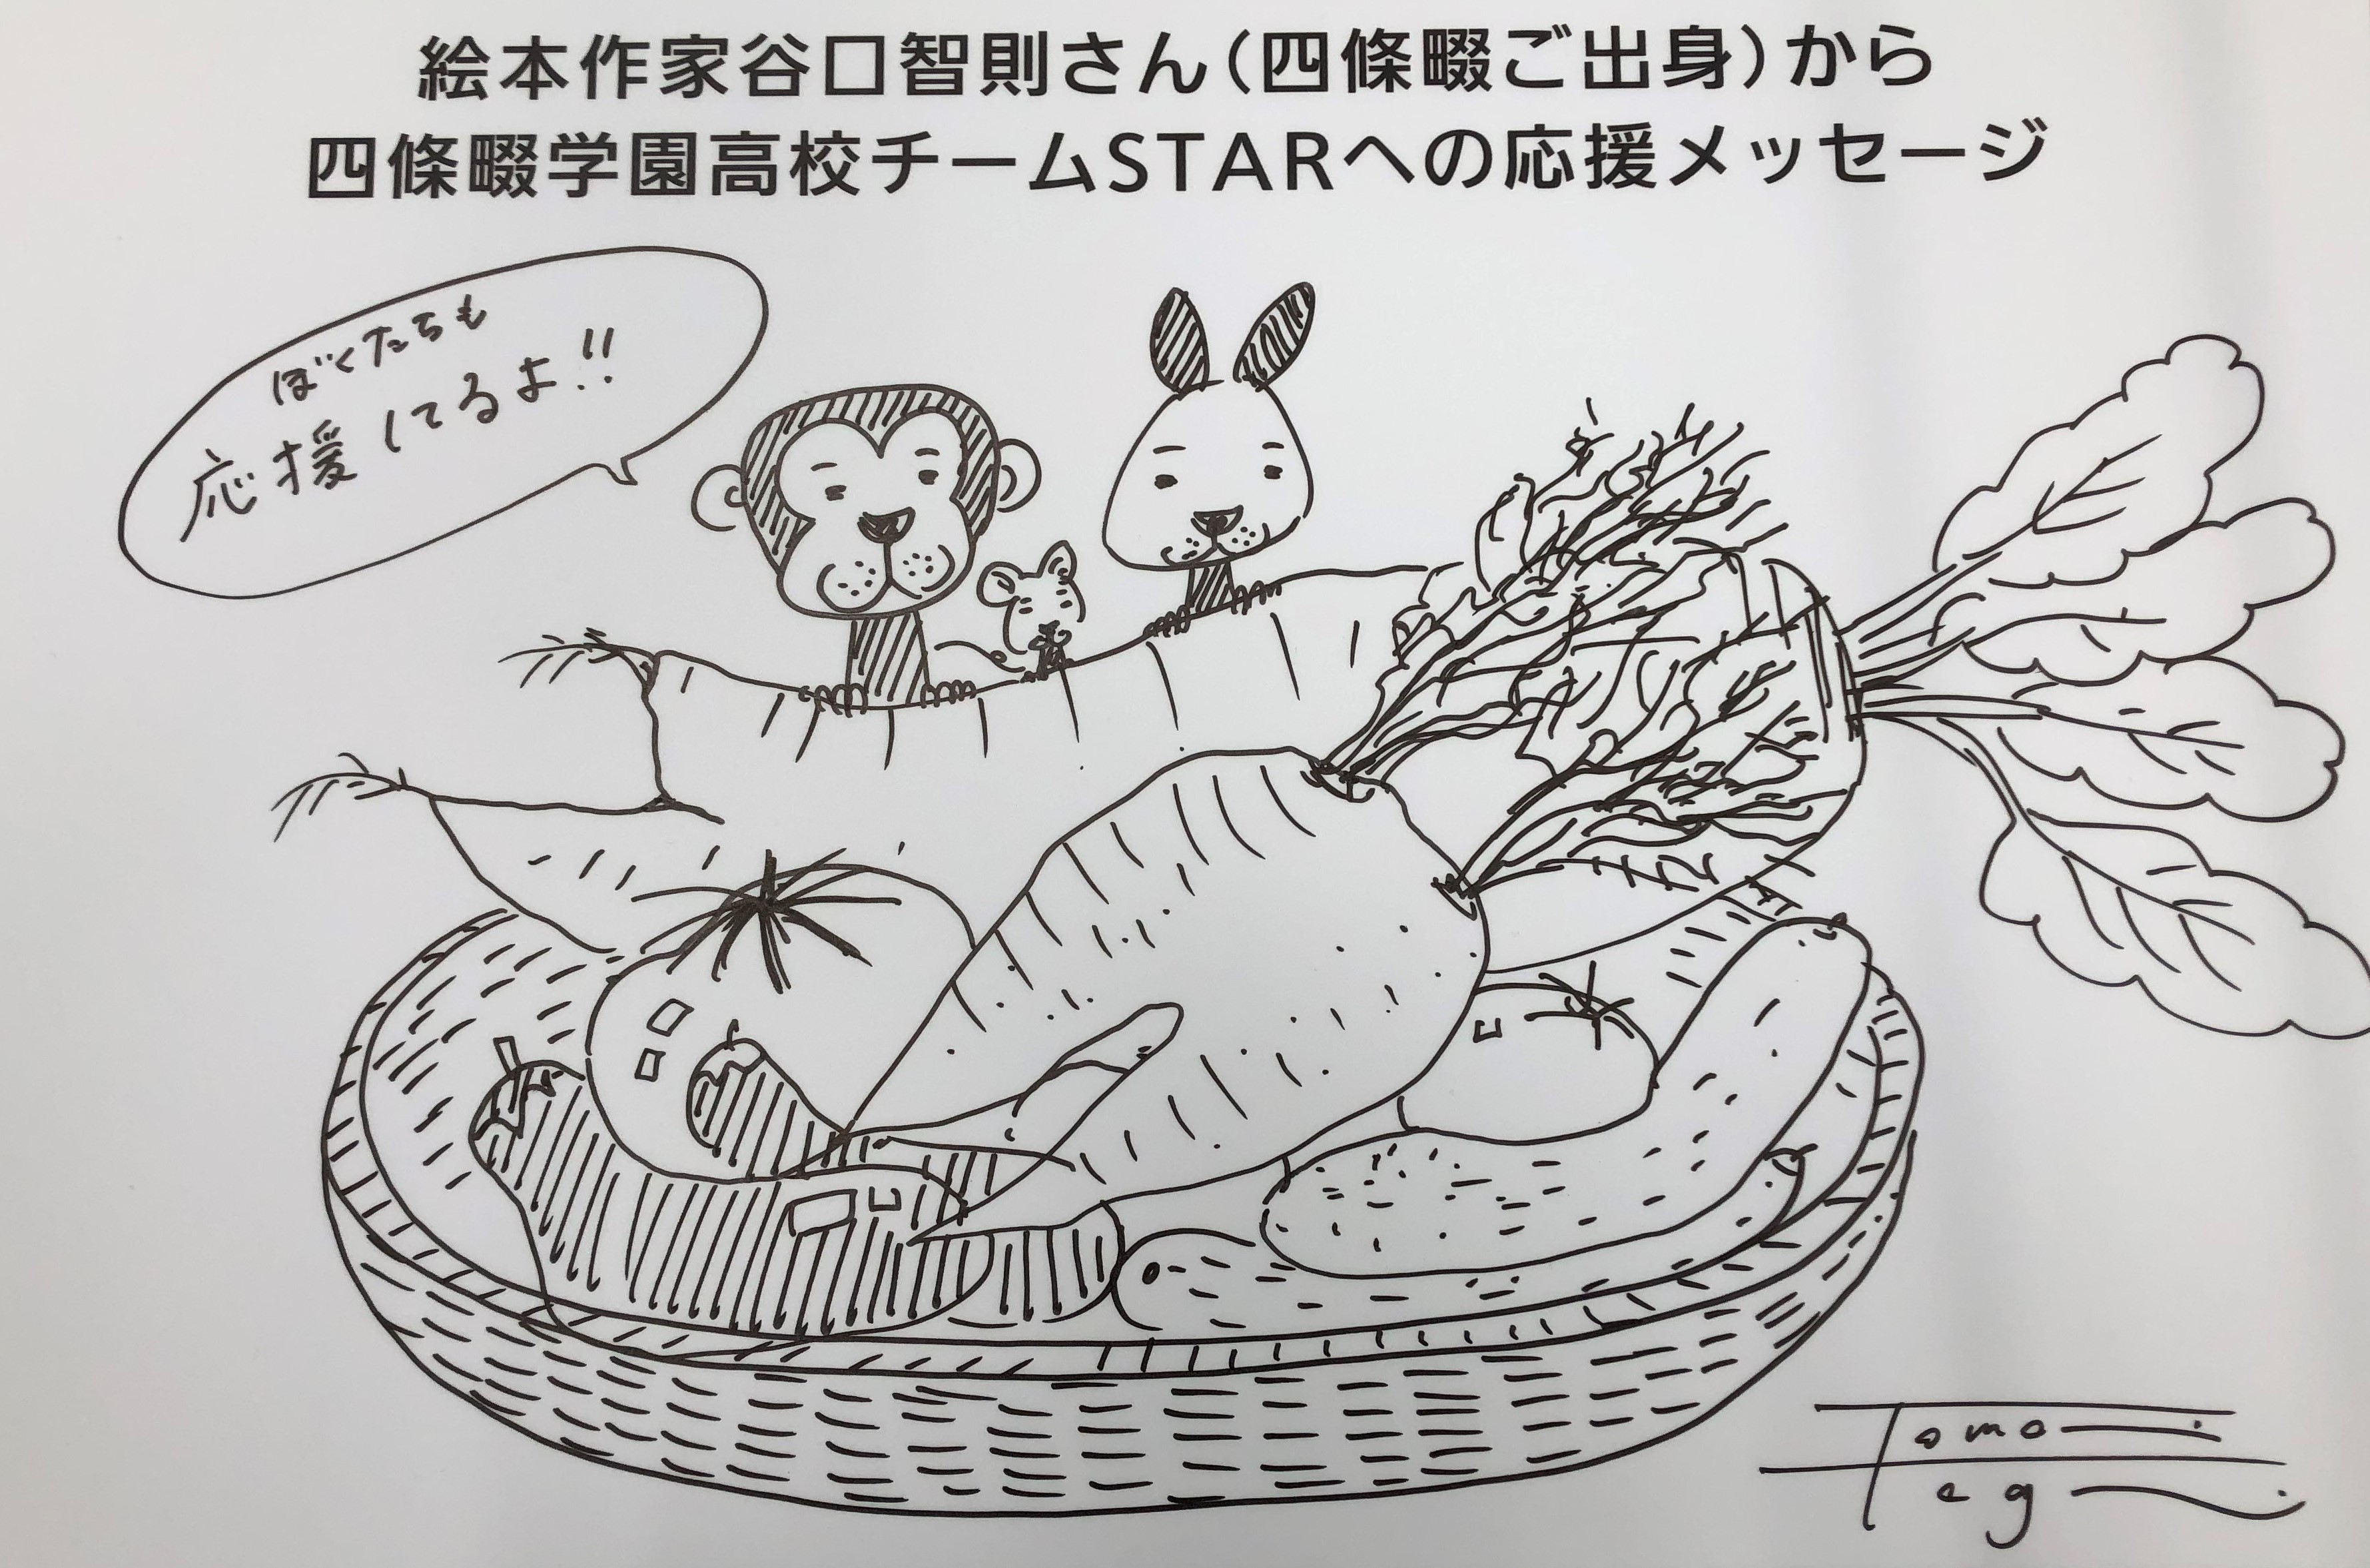 絵本作家谷口智則さん（四條畷ご出身）から
四條畷学園高校チームSTARへの応援メッセージ
ぼくたちも
応援してるよ!!